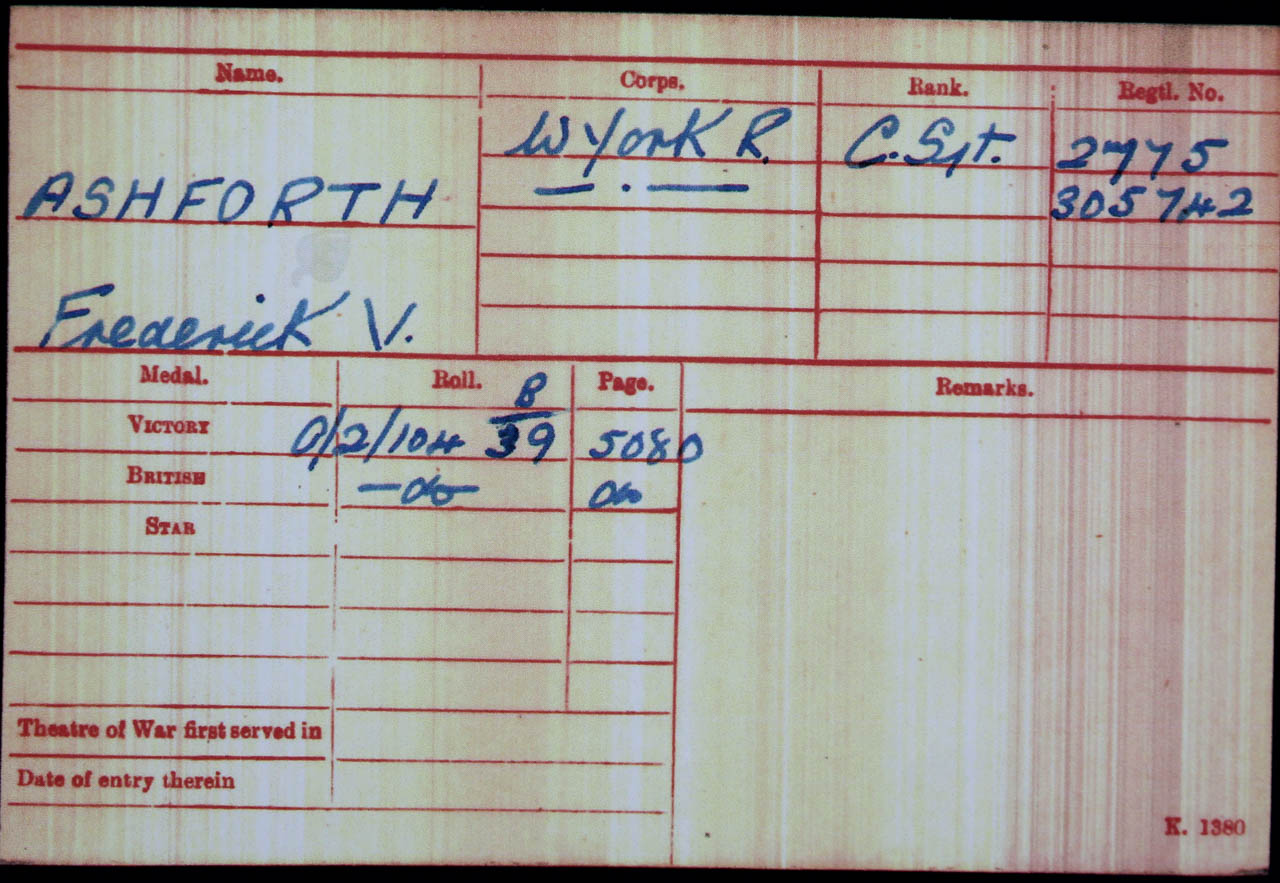 Name. Corps. Rank. Regtl. No.
W York R. C. Sgt. 2775
ASHFORTH — . — 305742
Frederick V.
Medal. Roll. Page. Remarks.
B
VICTORY O/2/104 39 5080
BRITISH —do— do
STAR
Theatre of War first served in
Date of entry therein
K. 1380